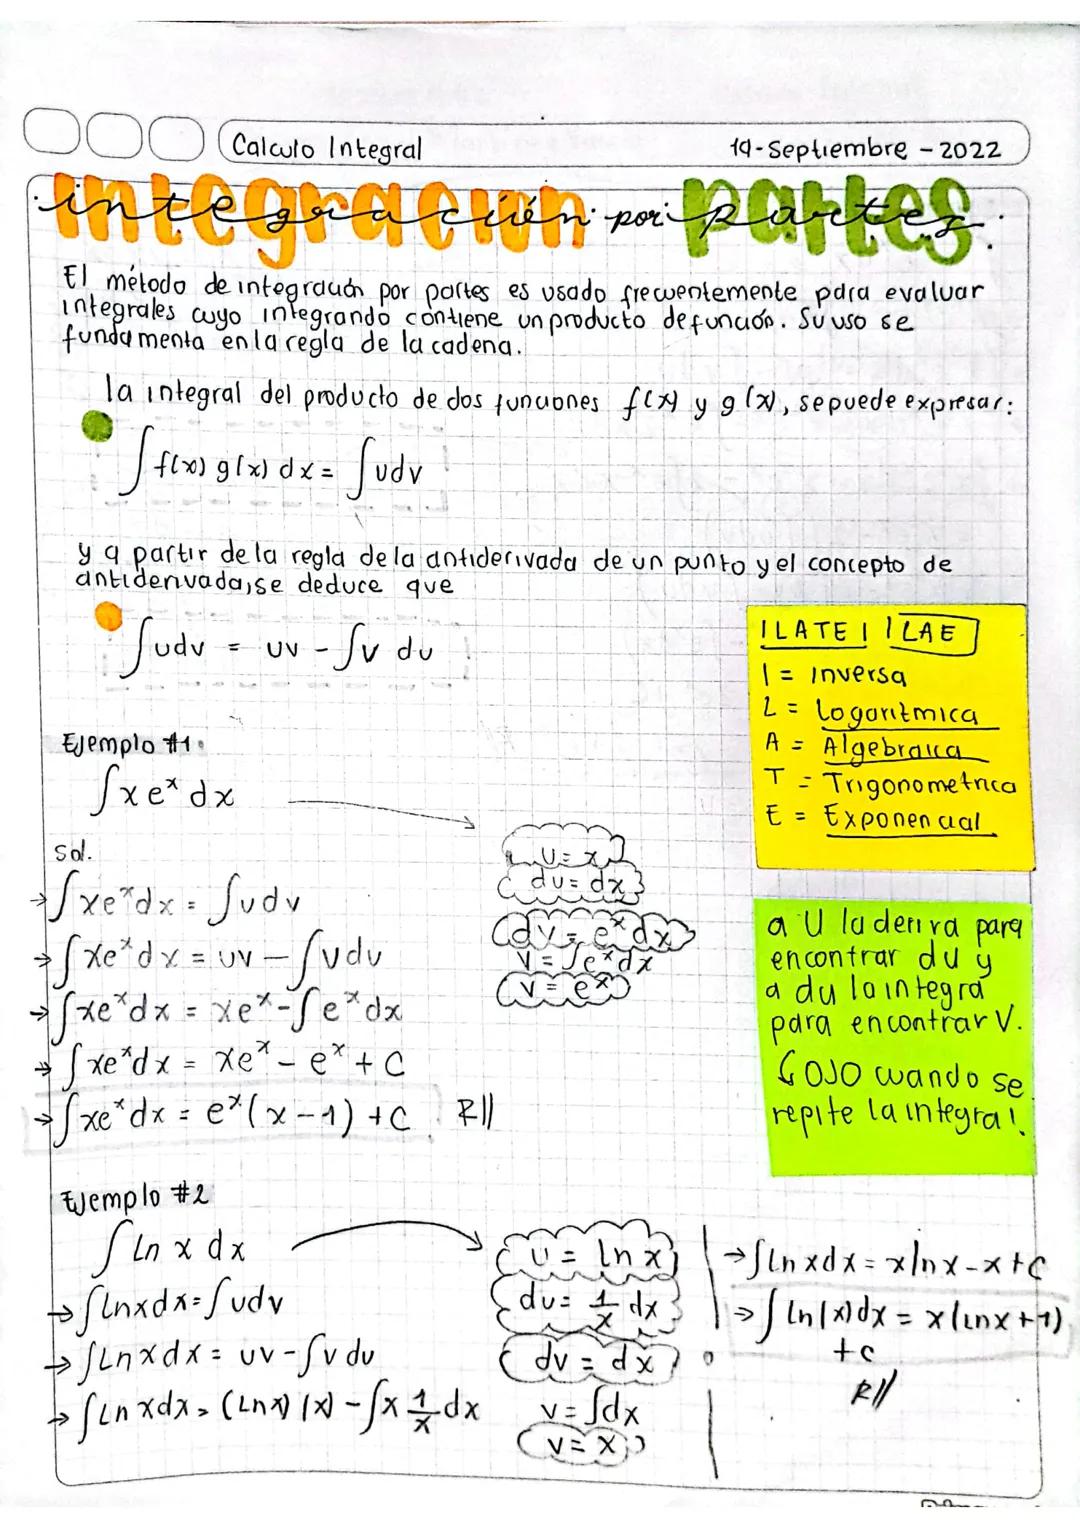 Calculo Integral
14-Septiembre - 2022
integración por partes
El método de integración por partes es usado frecuentemente para evaluar
integrales cuyo integrando contiene un producto de función. Su uso se
fundamenta en la regla de la cadena.
la integral del producto de dos funciones f(x) y g(x), se puede expresar:
∫f(x) g(x) dx = ∫udv
y a partir de la regla de la antiderivada de un punto y el concepto de
antiderivada, se deduce que
∫udv = uv - ∫v du
ILATE | ILAE
I = Inversa
L = Logaritmica
A = Algebraica
T = Trigonometrica
E = Exponencial
Ejemplo #1
∫x eˣ dx
sol.
→ ∫xeˣdx = ∫udv
→ ∫xeˣdx = uv - ∫vdu
→ ∫xeˣdx = xeˣ - ∫eˣdx
→ ∫xeˣdx = xeˣ - eˣ + C
→ ∫xeˣdx = eˣ(x-1) + C R//
u = x
du = dx
dv = eˣdx
v = ∫eˣdx
v = eˣ
a U la deriva para
encontrar du y
a du la integra
para encontrar V.
OJO cuando se
repite la integra!
Ejemplo #2
∫Ln x dx
→ ∫Lnxdx = ∫udv
→ ∫Lnxdx = uv - ∫vdu
→ ∫Ln xdx = (Lnx)(x) - ∫x 1/x dx
u = ln x
du = 1/x dx
dv = dx
v = ∫dx
v = x
→ ∫ln xdx = xlnx - x + C
→ ∫ln(x)dx = x(lnx+1)
+c
R//